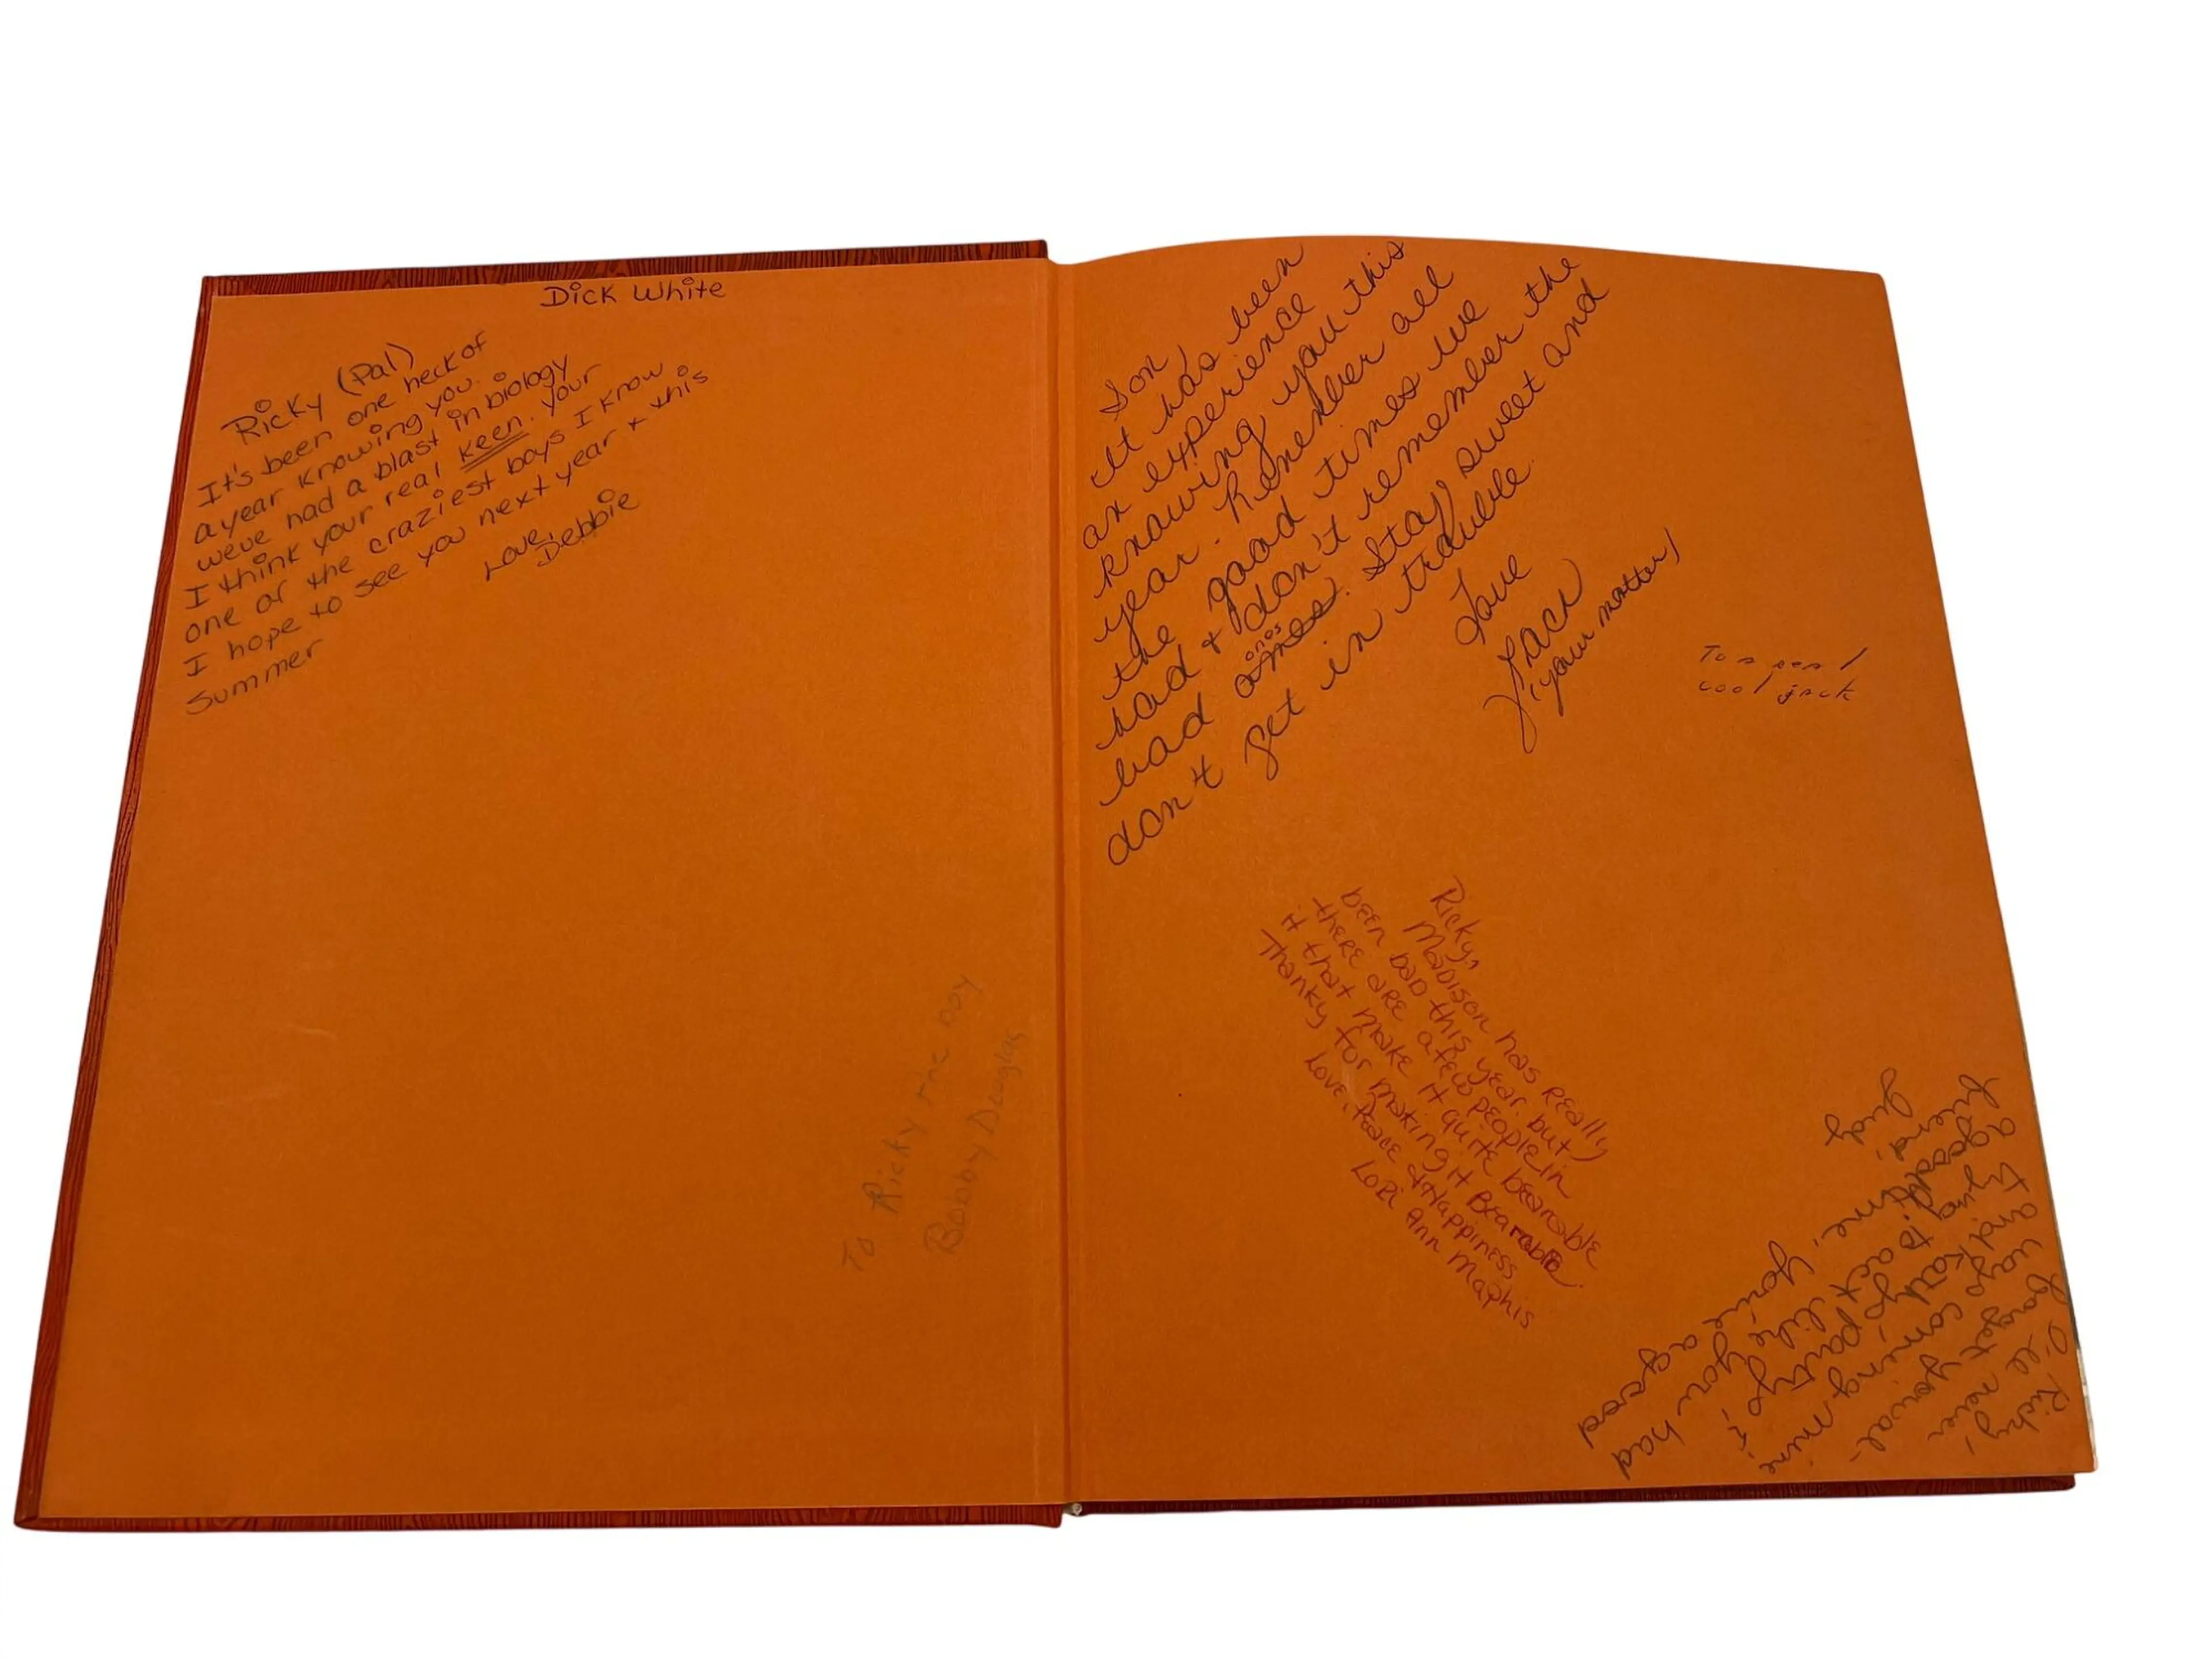 Dick White
Ricky (Pal)
It's been one heck of
a year knowing you.
weve had a blast in biology
I think your real keen. your
one of the craziest boys I know
I hope to see you next year + this
summer
Love,
Debbie
To Ricky the
Bobby Douglas
Son,
It has been
an experience
knowing you this
year. Remember all
the good times we
had + don't remember the
bad ones. Stay sweet and
don't get in trouble
Love
Traci
(your mother)
To a real
cool jack
Ricky,
Madison has really
been bad this year, but
there are a few people in
it that make it quite bearable
Thanky for making it Bearable.
Love, Peace & Happiness
Lori Ann Maphis
Ricky,
I'll never
forget your al-
ways coming
and talk
trying to act like you had
a good time. You're a good
friend.
Judy